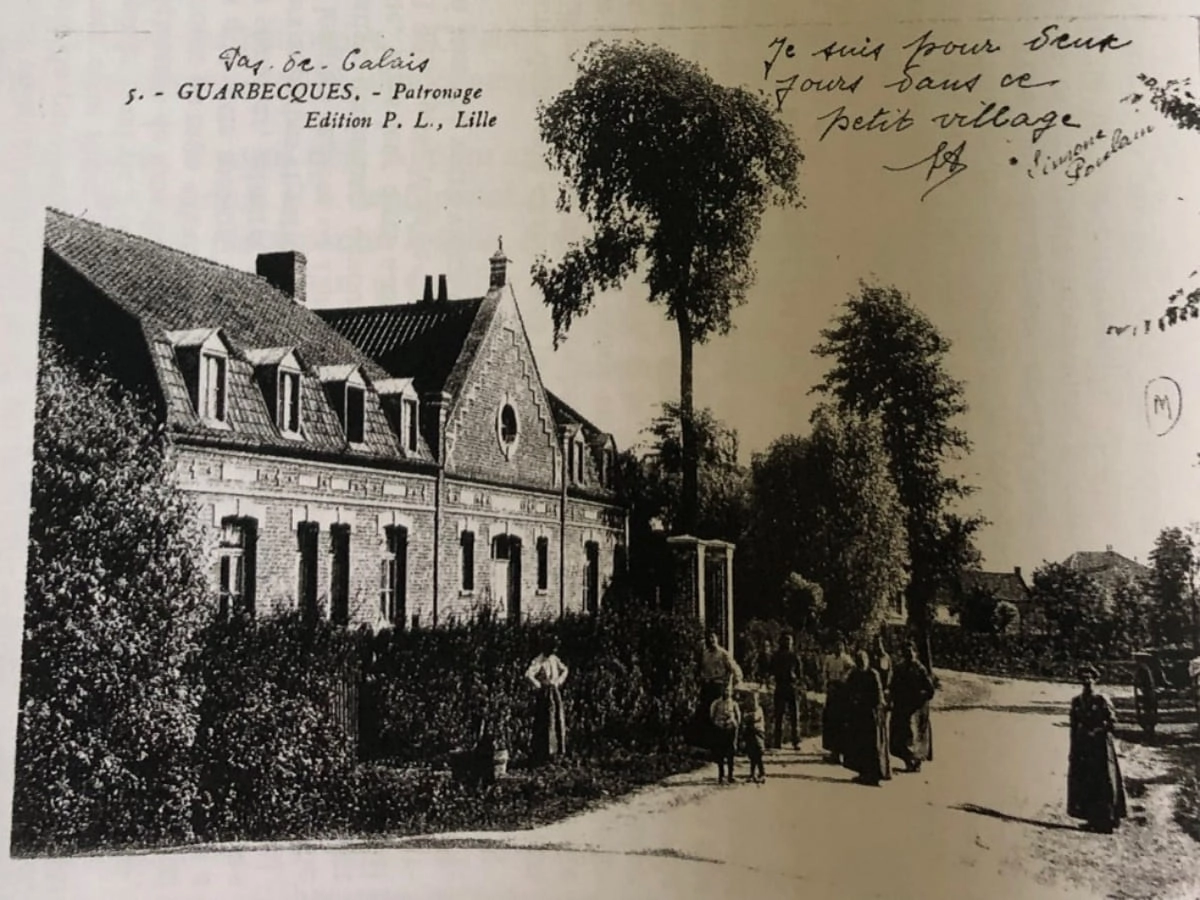 Pas-de-Calais
5. - GUARBECQUES. - Patronage
Edition P. L., Lille
Je suis pour deux
jours dans ce
petit village
Simone
Poulain
M